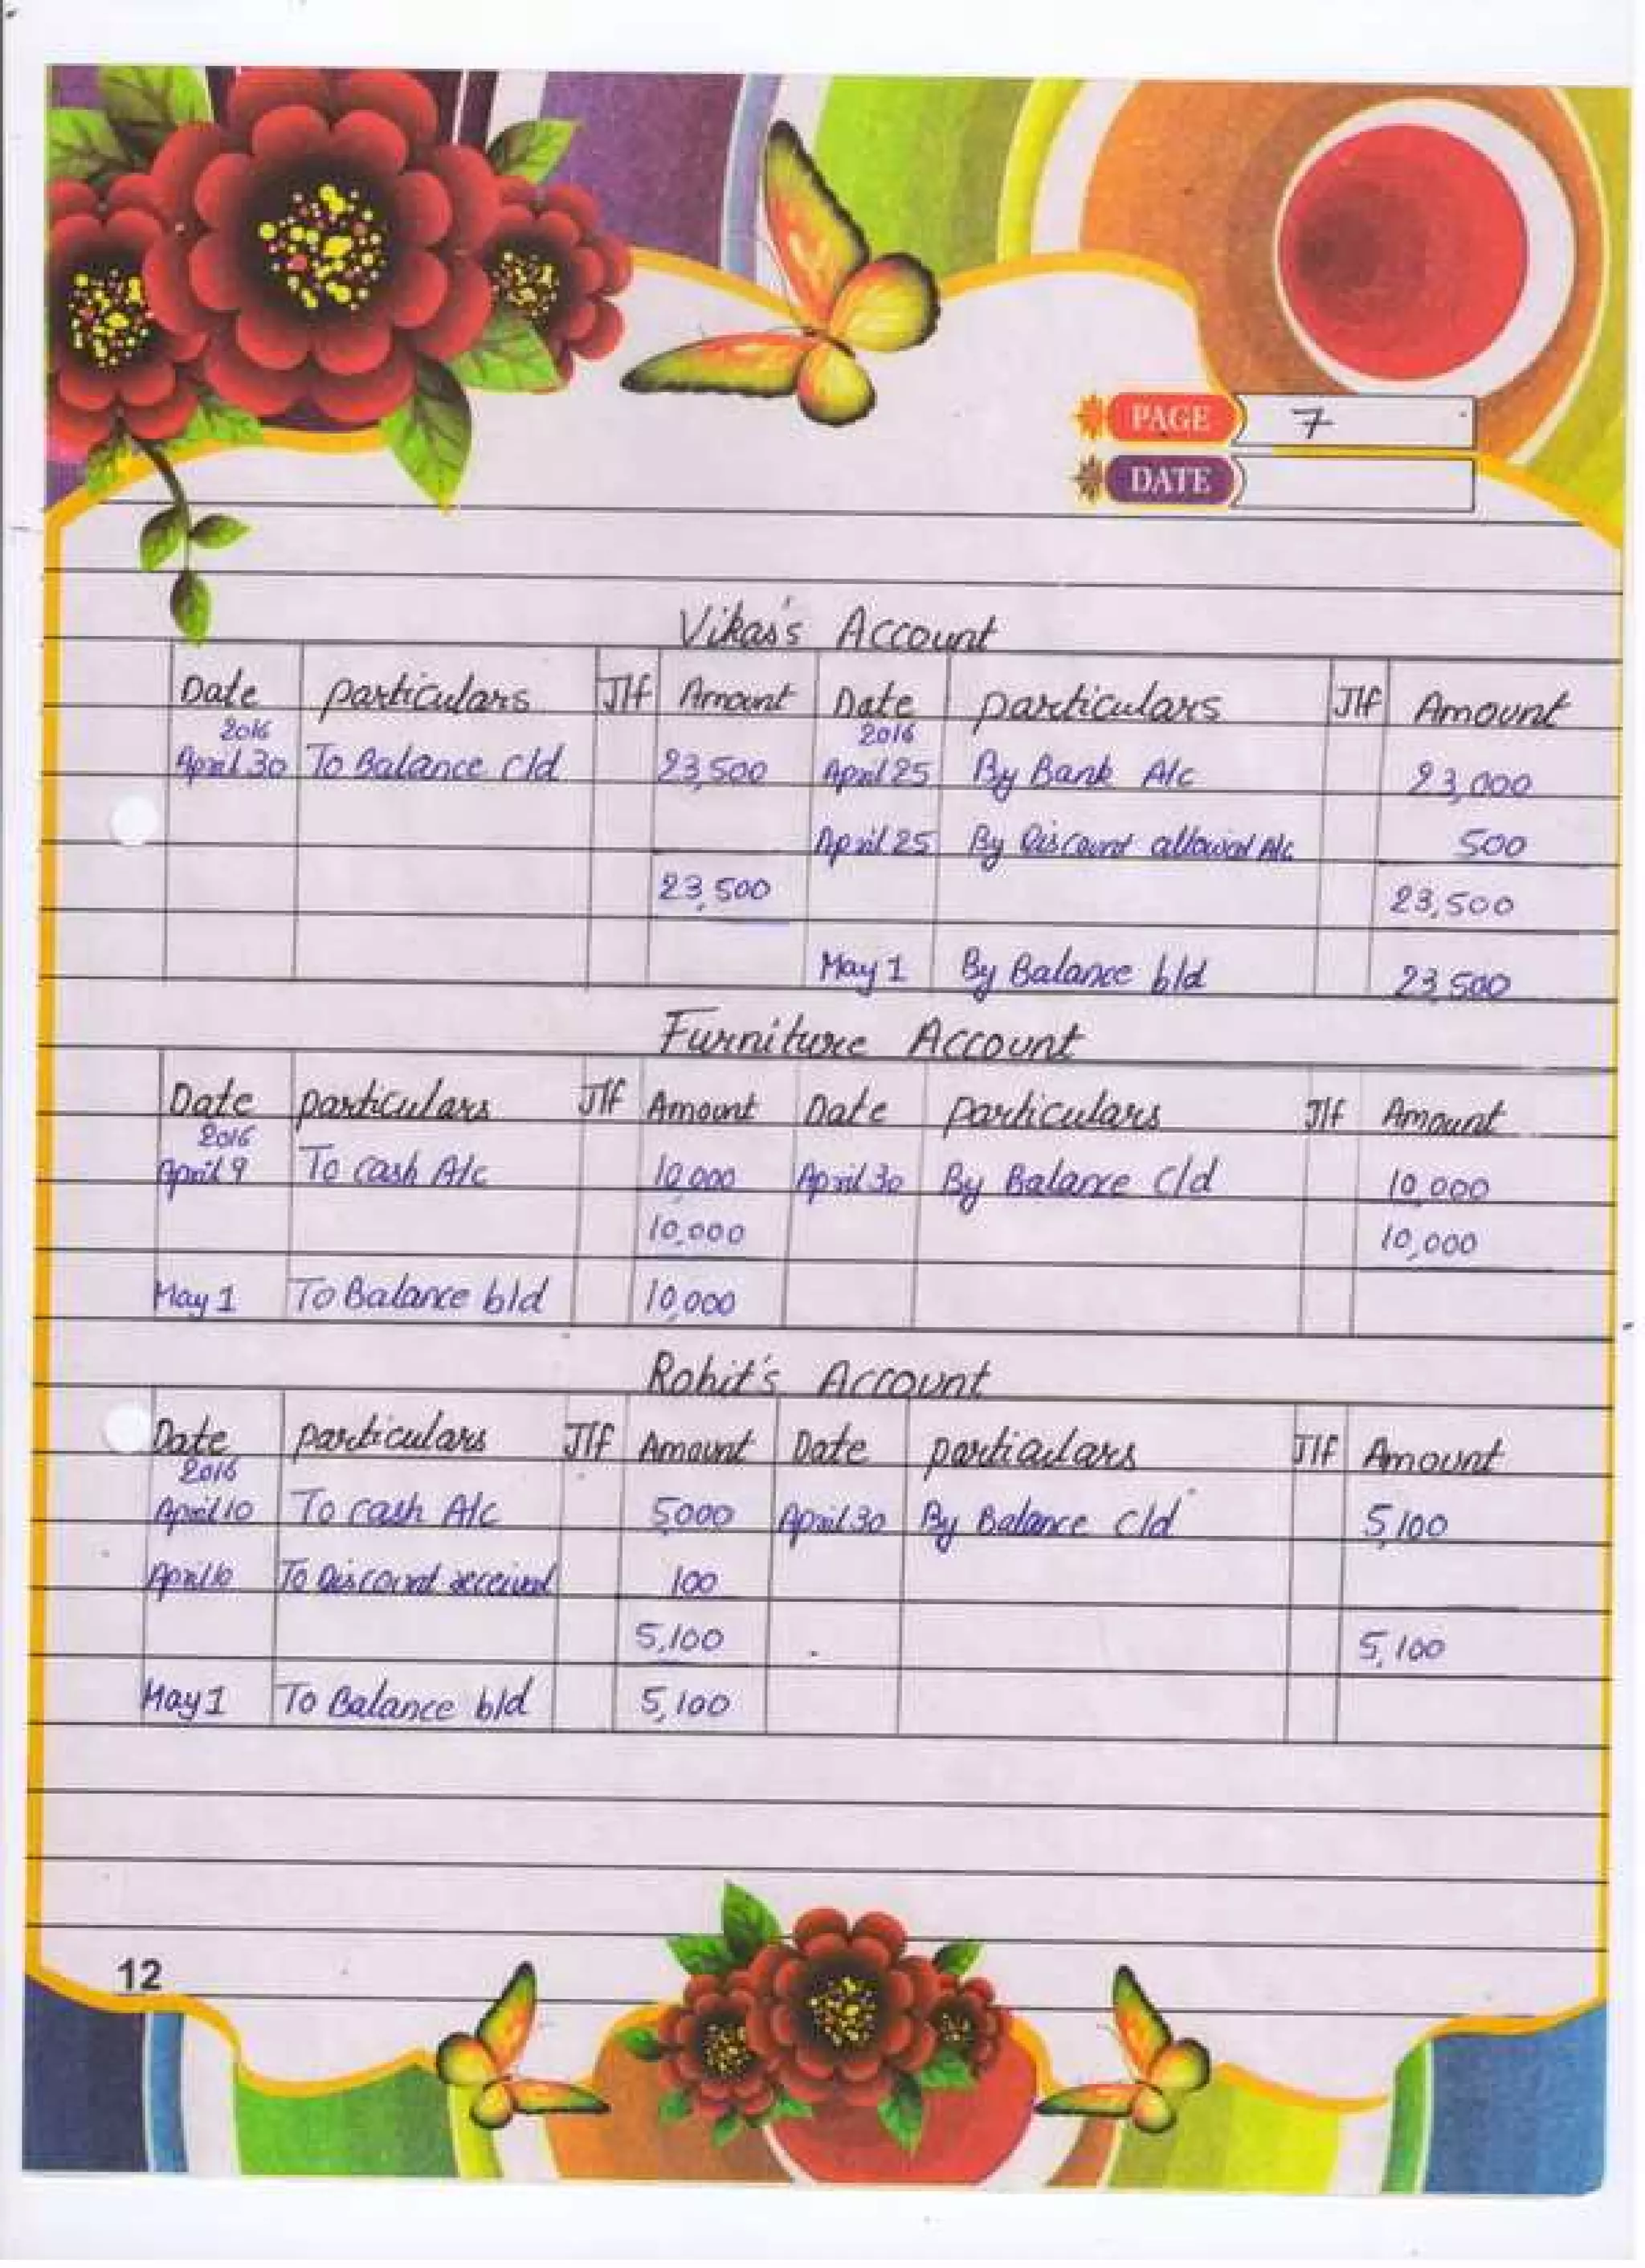 PAGE 7
DATE
Vikas's Account
Date particulars J/f Amount Date particulars J/f Amount
2016 2016
April 30 To Balance c/d 23,500 April 25 By Bank A/c 23,000
April 25 By Discount allowed A/c 500
23,500 23,500
May 1 By Balance b/d 23,500
Furniture Account
Date particulars J/f Amount Date particulars J/f Amount
2016
April 9 To cash A/c 10,000 April 30 By Balance c/d 10,000
10,000 10,000
May 1 To Balance b/d 10,000
Rohit's Account
Date particulars J/f Amount Date particulars J/f Amount
2016
April 10 To cash A/c 5000 April 30 By Balance c/d 5,100
April 10 To Discount received 100
5,100 5,100
May 1 To Balance b/d 5,100
12